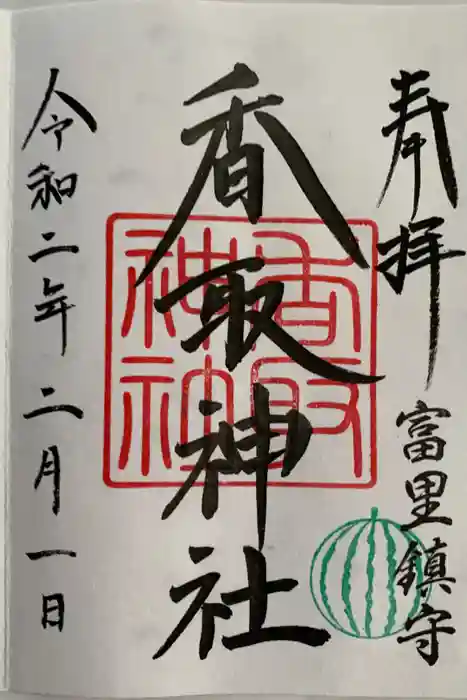 奉拝
富里鎮守
香取神社
香取神社
令和二年二月一日